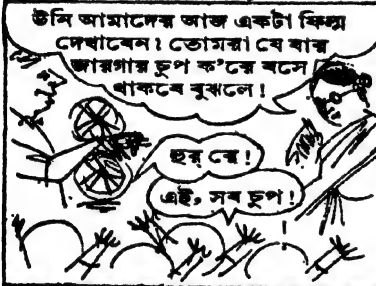 উনি আমাদের আজ একটা ফিল্ম
দেখাবেন। তোমরা যে যার
জায়গার চুপ ক'রে বসে
থাকবে বুঝলে!
হুর্ রে!
এই, সব চুপ!